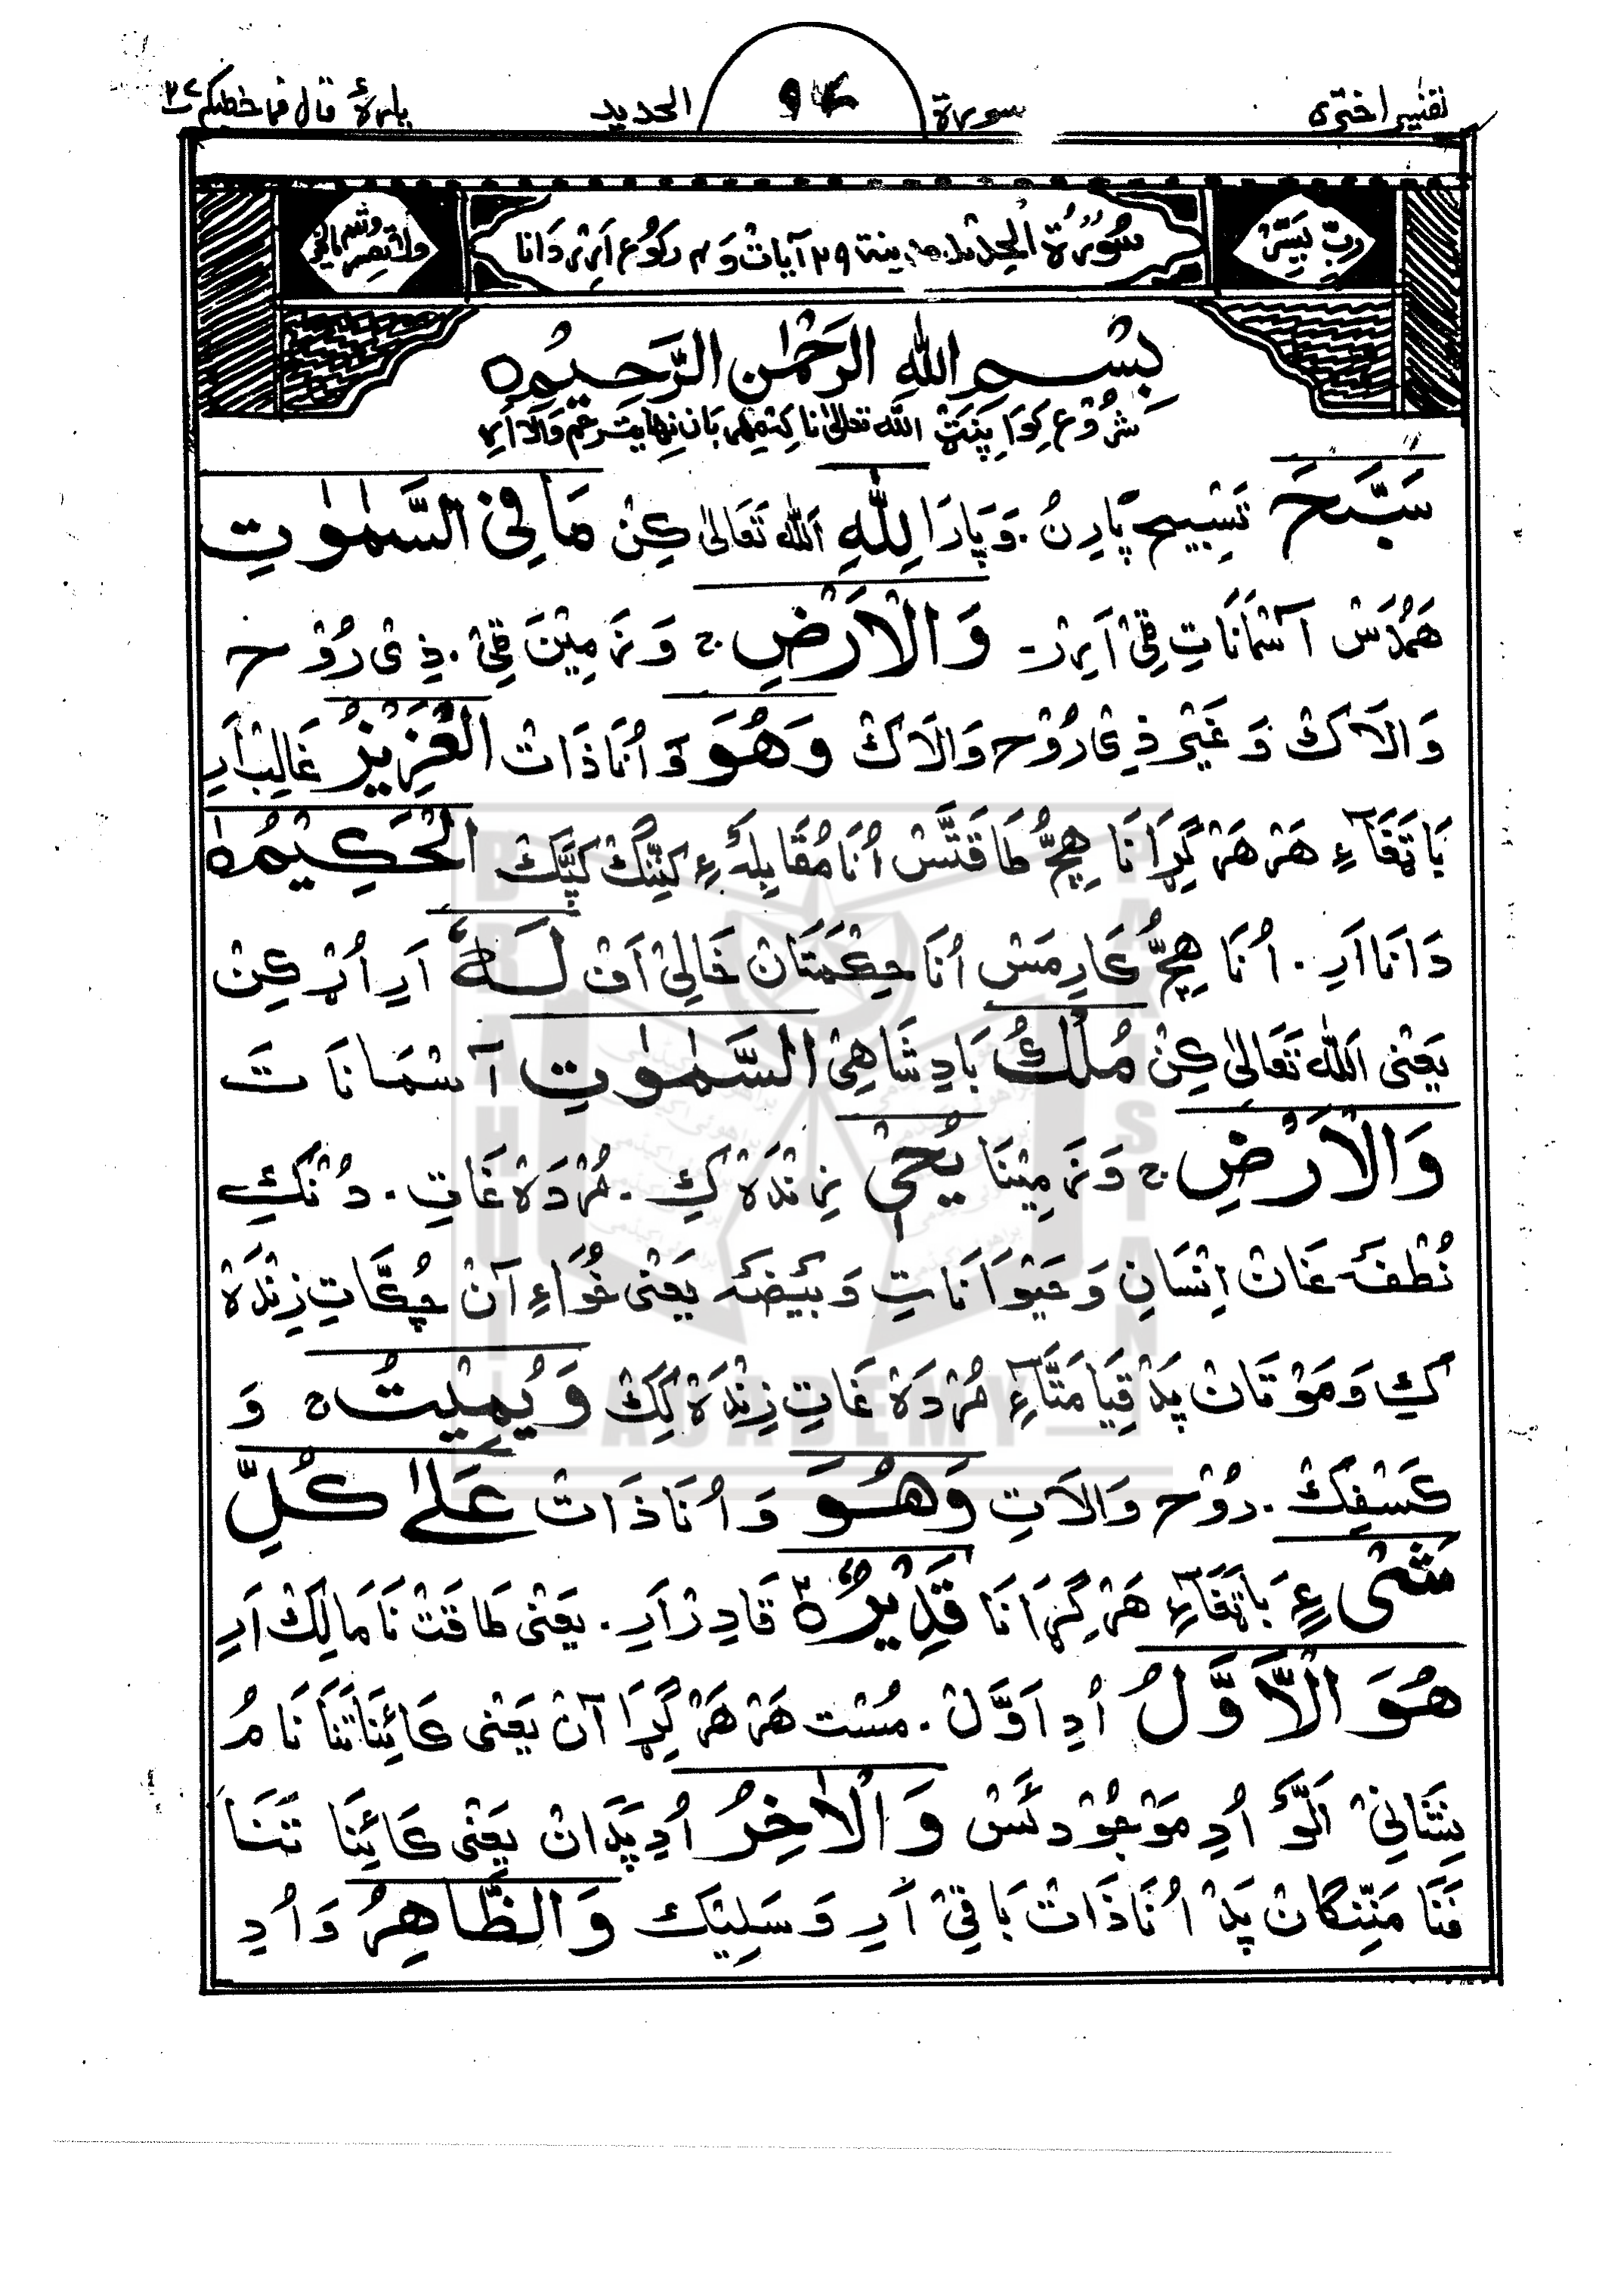 تفسیر اختری سورة الحدید پارۂ قال فما خطبکم ۲۷
رَبِّ یَسِّرْ سُوْرَۃُ الْحَدِیْد مدینة ۲۹ آیاتْ وَ ۴ رکُوْع اَرِیْر دَانَا
بِسْمِ اللهِ الرَّحْمٰنِ الرَّحِیْمِ ہ
شُرُوْع کِوَا پِنَٹْ اللہ تعالیٰ نا کِہ مِہربَان نِہایت رحم والا اَرِ
سَبَّحَ تَسْبِیح پَارِنُ . وَ پَارَا لِلّٰهِ اَللہ تَعَالیٰ کِنْ مَا فِی السَّمٰوٰتِ
هَمُدَسْ آسْمَانَاتِ قِیْ اَرِیْر وَالْاَرْضِ ج وَ زَمِیْنَ قِیْ . ذِیْ رُوْح
وَالَاکْ وَ غَیْر ذِیْ رُوْح وَالَاکْ وَهُوَ وَ اُنَا ذَاتْ الْعَزِیْزُ غَالِبْ اَرِ
بَاتِغَآءِ هَرْ هَرْ گِڑَانَا هِچُّ طَاقَتَّسْ اُنَا مُقَابِلَہءِ کَنِّنْگْ کَپَّکْ الْحَکِیْمُ ہ
دَانَا اَرِ . اُنَا هِچُّ کَارِمَسْ اُنَا حِکْمَتَانْ خَالِیْ اَفْ لَهٗ اَرِ اُڑْ کِنْ
یَعْنی اَللہ تَعَالیٰ کِنْ مُلْكُ بَادِشَاهِیْ السَّمٰوٰتِ آسْمَانَاتَ
وَالْاَرْضِ ج وَ زَمِیْنَا یُحْیٖ زِنْدَہْ کِ . مُرْدَہْ غَاتِ . دُنْکِ
نُطْفَہ غَانْ اِنْسَانِ وَ حَیْوَانَاتِ وَ بَیْضَہ یَعْنی خُوَاءِ آنْ چُکَّاتِ زِنْدَہْ
کِ وَ مَوْتَانْ پَدْ قِیَامَتَآءِ مُرْدَہْ غَاتِ زِنْدَہْ کِکْ وَیُمِیْتُ ج وَ
کَسْفِکْ . رُوْح وَالَاتِ وَهُوَ وَ اُنَا ذَاتْ عَلٰی کُلِّ
شَیْءٍ بَاتِغَآءِ هَرْ گِڑَانَا قَدِیْرٌ ہ قَادِرْ اَرِ . یَعْنی طَاقَتْ نَا مَالِکْ اَرِ
هُوَ الْاَوَّلُ اُدِ اَوَّلْ . مُسْت هَرْ هَرْ گِڑَا آنْ یَعْنی کَائِنَاتَنَا نَامُ
نِشَانِیْ اَلَّوْ اُدِ مَوْجُوْدَسْ وَالْاٰخِرُ اُدِ پَدَانْ یَعْنی کَائِنَا تَنَا
فَنَا مَنِّنْگَانْ پَدْ اُنَا ذَاتْ بَاقِیْ اَرِ وَ سَلِیْکْ وَالظَّاهِرُ وَ اُدِ